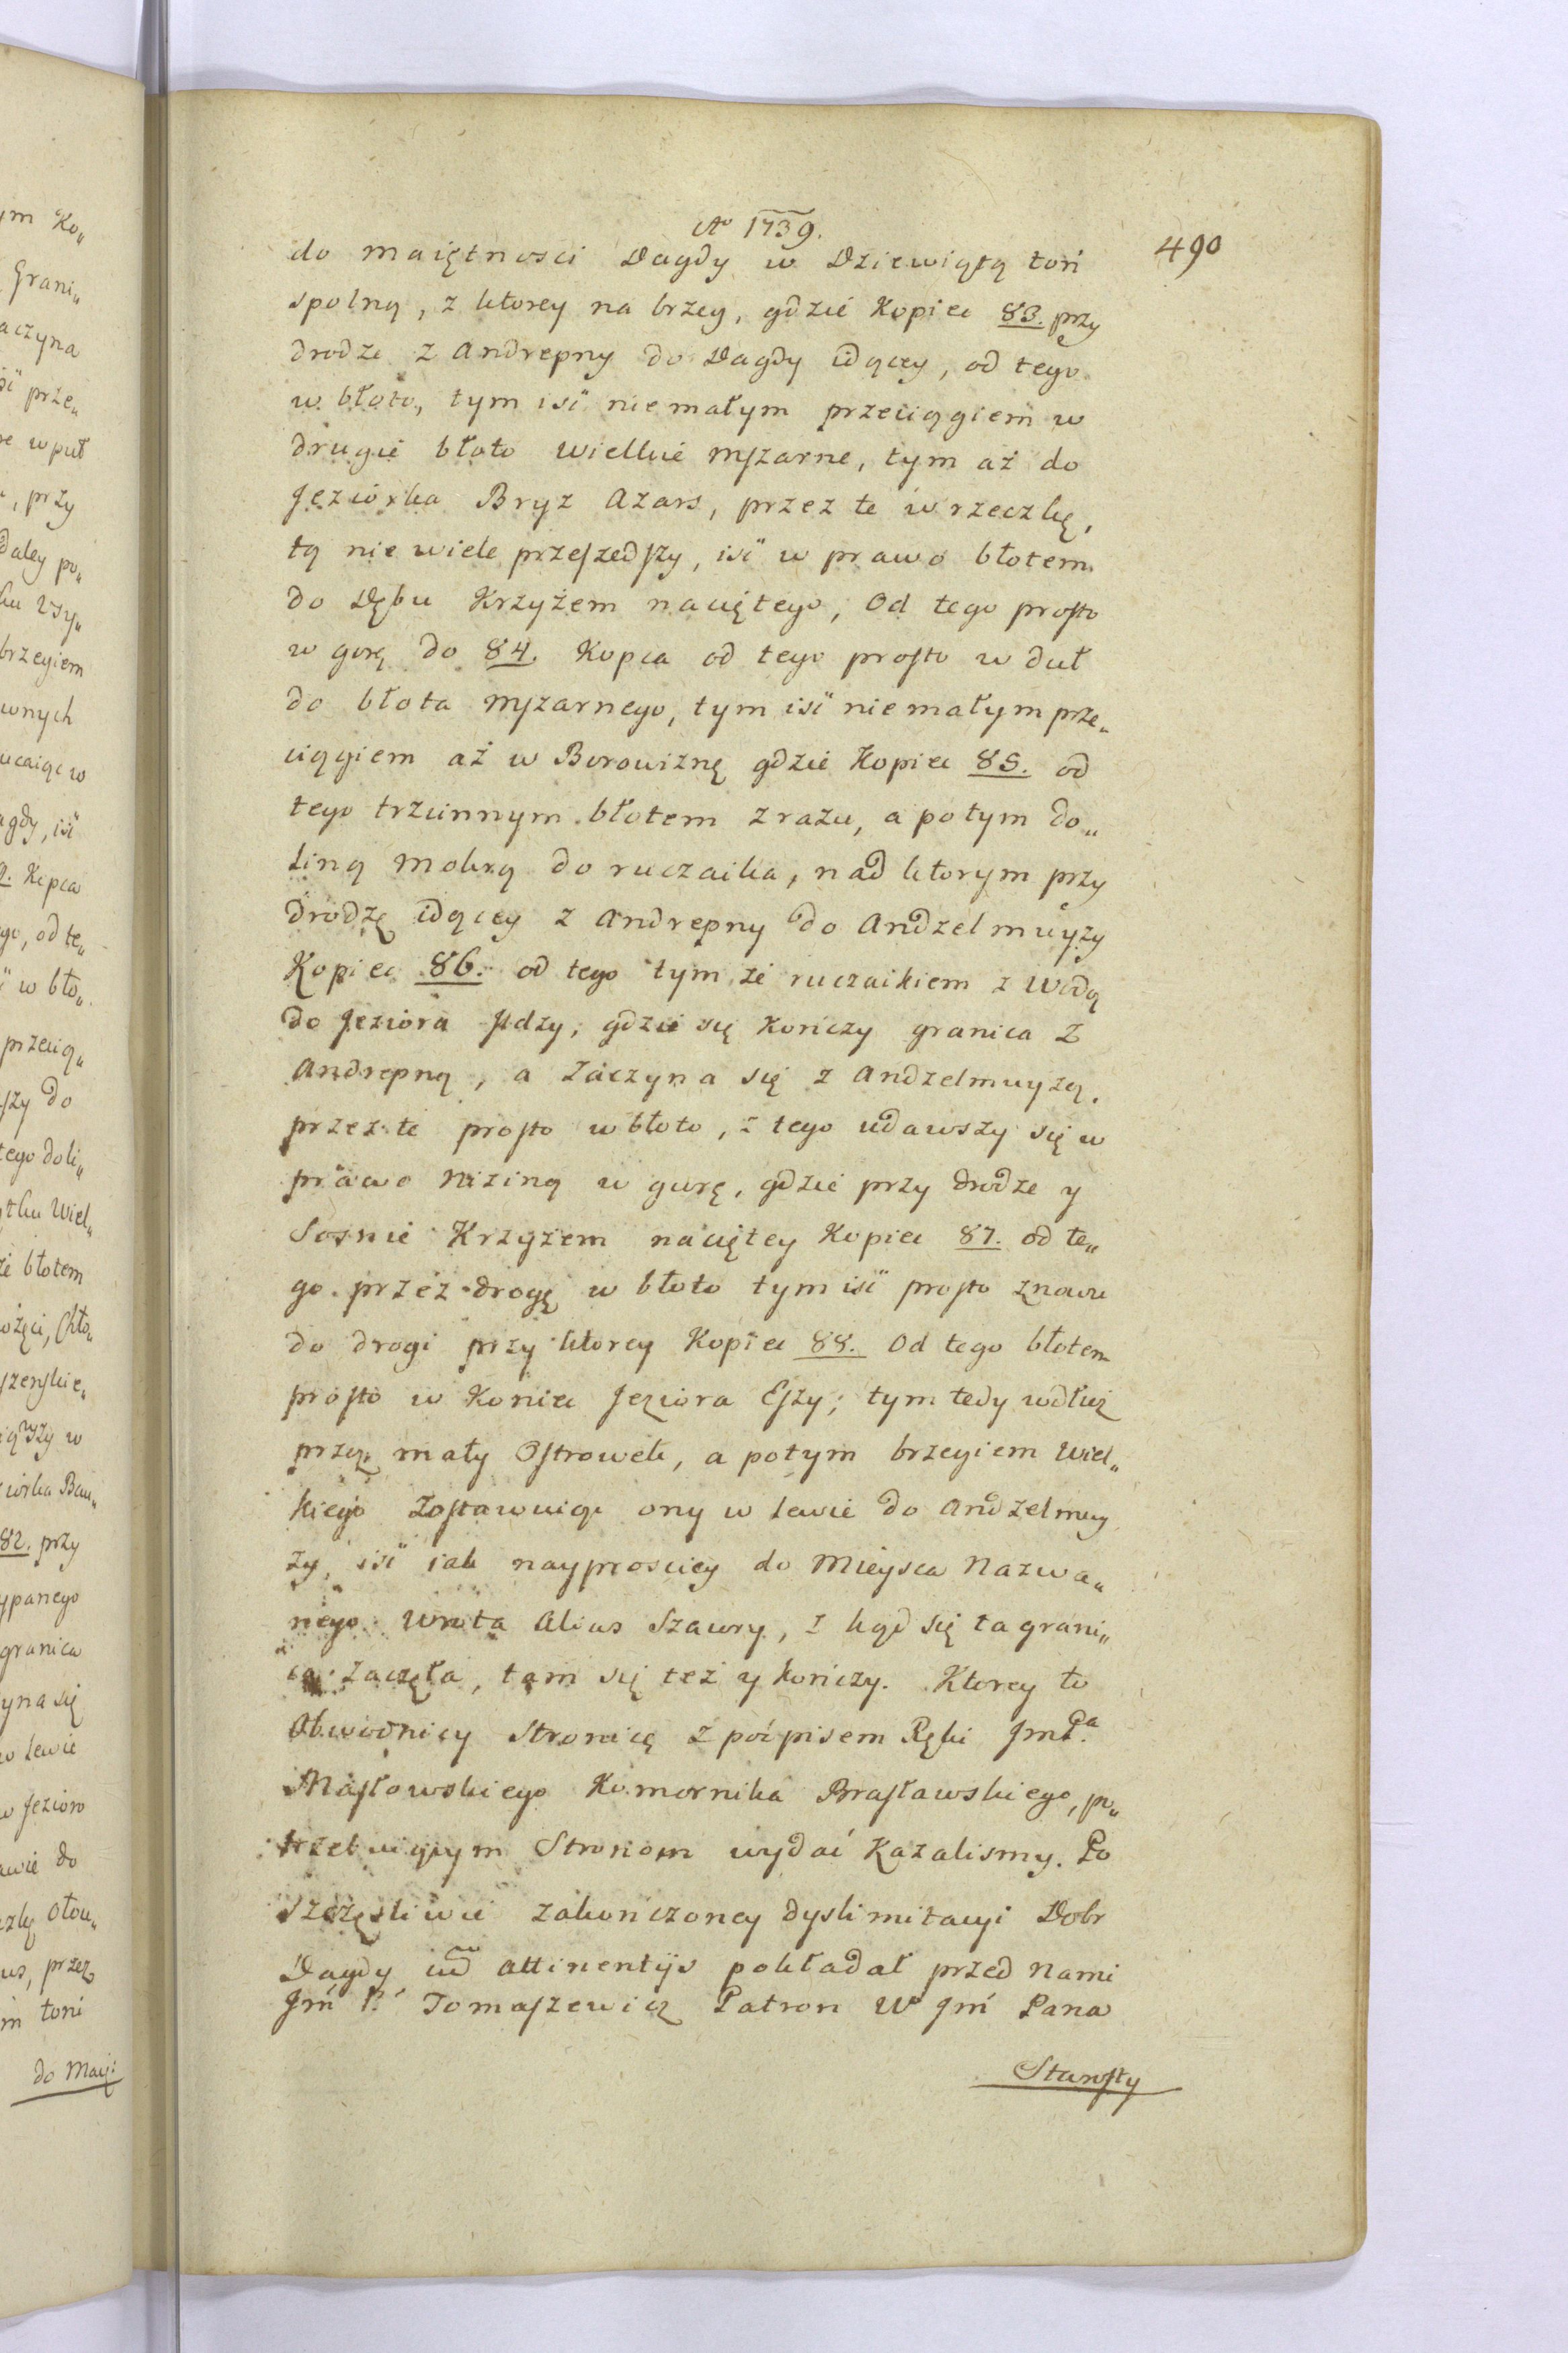 Ao 1739.
490
do maiętnosci Dagdy w Dziewiątą toń
spolną, z ktorey na brzeg, gdzie Kopiec 83. przy
drodze z Andrepny do Dagdy idącey, od tego
w błoto, tym iść niemałym przeciągiem w
drugie błoto wielkie mszarne, tym aż do
Jeziorka Bryz Azars, przez te w rzeczkę,
tą nie wiele przeszedszy, iść w prawo błotem
do Dębu Krzyżem naciętego, Od tego prosto
w gorę do 84. Kopca od tego prosto w duł
do błota mszarnego, tym iść niemałym prze„
ciągiem aż w Borowiznę gdzie Kopiec 85. od
tego trzcinnym błotem zrazu, a potym do„
liną mokrą do ruczaika, nad ktorym przy
drodze idącey z Andrepny do Andzelmuyzy
Kopiec 86. od tego tym że ruczaikiem z wodą
do Jeziora Jidzy, gdzie się Kończy granica z
Andrepną, a Zaczyna się z Andzelmuyzą.
przez te prosto w błoto, z tego udawszy się w
prawo niziną w gurę, gdzie przy drodze y
Sosnie Krzyżem naciętey Kopiec 87. od te„
go przez drogę w błoto tym iść prosto znowu
do drogi przy ktorey Kopiec 88. Od tego błotem
prosto w Koniec Jeziora Eszy; tym tedy wdłuż
przez mały Ostrowek, a potym brzegiem Wiel„
kiego Zostawuiąc ony w lewie do Andzelmuy
zy, iść iak nayprosciey do Mieysca Nazwa„
nego Wrota Alias Szawry, z kąd się ta grani„
ca zaczęła, tam się też y kończy. Ktorey to
Obwodnicy Stronicę z potpisem Ręki Jm Pa
Masłowskiego Komornika Brasławskiego, po„
trzebuiącym Stronom wydać Kazalismy. Po
szczęśliwie zakończoney dyslimitacyi Dobr
Dagdy cũ attinentijs pokładał przed nami
Jm̃ P. Tomaszewicz Patron W Jm̃ Pana
Starosty
ym Ko„
Grani„
aczyna
iść prze„
re w puł
, przy
daley po„
brzegiem
wnych
ucaiąc w
agdy, iść
Kopca
go, od te„
w bło„
przecią„
szy do
tego doli„
tku Wiel„
że błotem
szenskie„
82. przy
ypanego
granica
yna się
w lewie
w Jezioro
awie do
us, przez
m toni
do Maię: